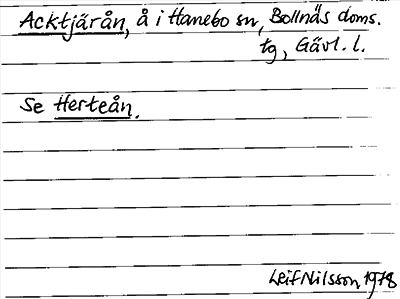 Acktjärån, å i Hanebo sn, Bollnäs doms.
tg, Gävl. l.
Se Herteån.
Leif Nilsson 1978